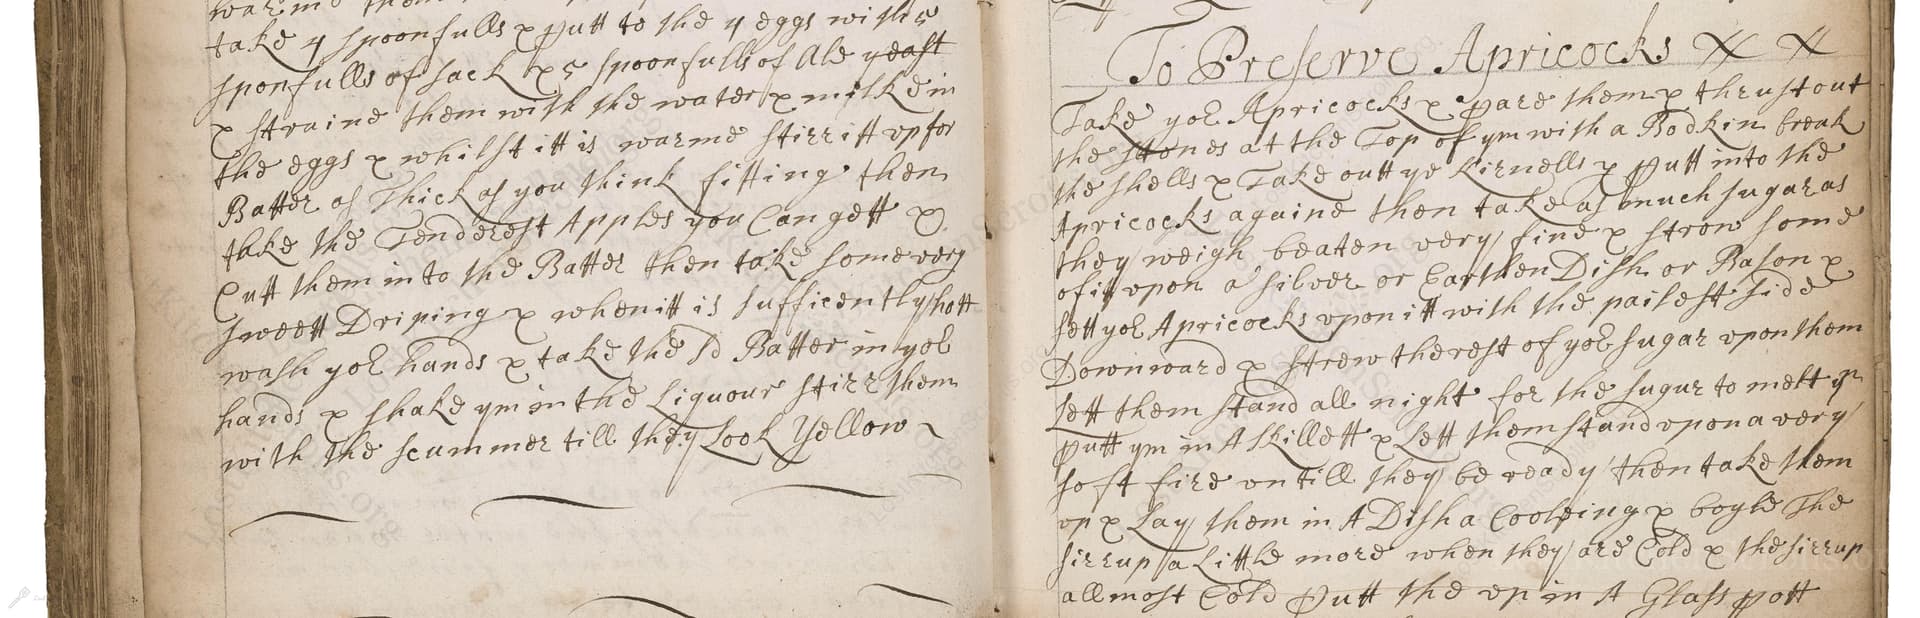 warme them
take y spoonfulls & putt to the y eggs with 5
sponfulls of sack & 5 spoonfulls of Ale yeast
& straine them with the water & milke in
the eggs & whilst itt is warme stirr itt up for
Batter as Thick as you think fitting then
take the Tenderest Apples you Can gett &
Cutt them in to the Batter then take some very
sweett Driping & when itt is sufficently hott
wash yor hands & take the sd Batter in yor
hands & shake ym in the Liquour stirr them
with the scummer till they Look Yellow
To Preserve Apricocks
Take yor Apricocks & pare them & thrust out
the stones at the Top of ym with a Bodkin break
the shells & Take outt ye Kirnells & putt into the
Apricocks againe then take as much sugar as
they weigh beaten very fine & strow some
of it upon a silver or Earthen Dish or Bason &
sett yor Apricocks upon itt with the pailest side
Downward & strew the rest of yor sugar upon them
Lett them stand all night for the sugur to melt yn
putt ym in A skillett & Lett them stand upon a very
soft fire untill they be ready then take them
up & Lay them in A Dish a Cooleing & boyle The
sirrup a Little more when they are Cold & the sirrup
allmost Cold putt the up in A Glass pott